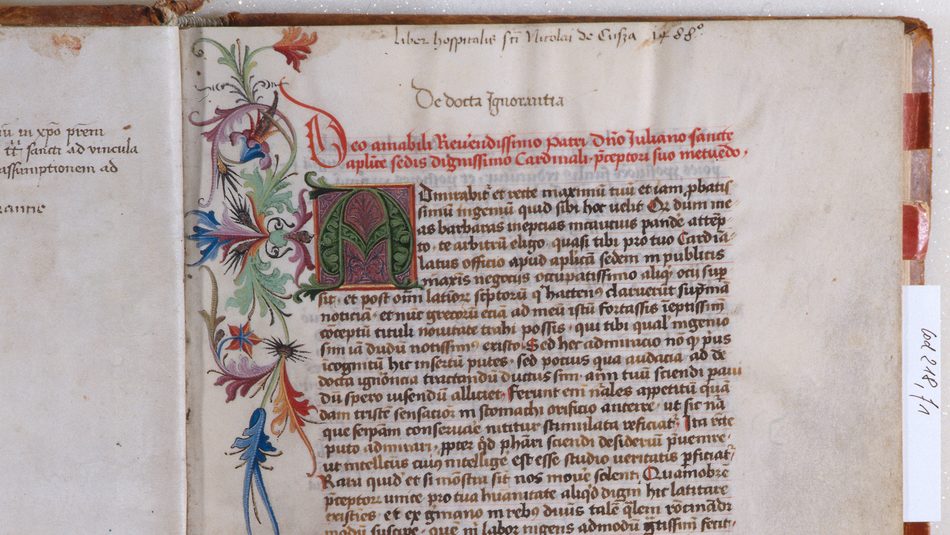 in xpo prem
sancti ad vincula
assumptionem ad
liber hospitalis sti Nicolai de Cusza 1488º
De docta Ignorantia
Deo amabili Reverendissimo Patri dno Iuliano sancte
aplice sedis dignissimo Cardinali pceptori suo metuedo
Admirabit et recte maximu tuu et iam pbatis
simu ingeniu quid sibi hoc velit Qr dum me
as barbaras ineptias incautius pande attep
to te arbitru eligo quasi tibi pro tuo Cardia
latus officio apud aplica sedem in publicis
maxis negociis occupatissimo aliqd ocii sup
sit et post oim latior scptoru q hactenus claruerut supma
noticia et nuc grecoru etia ad meu istu fortassis ieptissim
coceptu tituli novitate trahi possis qui tibi qual ingenio
sim ia dudu notissimus existo Sed hec admiracio no q pus
icognitu hic insertu putes sed pocius qua audacia ad de
docta ignoncia tractandu ductus sim aim tuu sciendi
du spero visendu alliciet Ferunt em nales appetitu qua
dam triste sensatioe in stomachi orificio anteire ut sic na
que seipam conservare nititur stimulata reficiat Ita recte
puto admirari ppter qd phari sciendi desideriu pvenire
ut intellectus cuius intellige est esse studio veritatis pficiat
Rara quide et si mostra sit nos move solent Quamobre
pceptoru unice pro tua huanitate aliqd digni hic latitare
existies et ex gmano in rebus divis tale qlem rocinadi
modu suscipe que m labor ingens admodu gtissim fecit
Cod 218, f 1